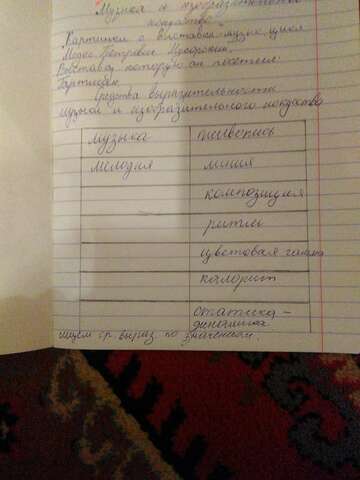 Музыка и изобразительное
искусство.
Картинки с выставки-музык. цикл
Модес Петрович Мусоргский.
Выставка, которую он посетил
Гартмобен.
Средства выразительности
музыки и изобразительного искусства
музыка живопись
мелодия линия
композиция
ритм
цветовая гамма
колорит
статика-
динамика
ищем ср. выраз по значению.